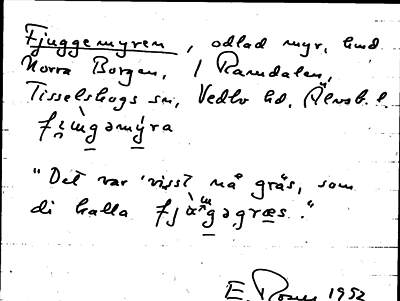 Fjuggemyren, odlad myr, hmd.
Norra Borgen, / Ramdalen,
Tisselskogs sn, Vedbo hd, Älvsb. l.
"Det var visst nå gräs, som
di kalla
E. 1952